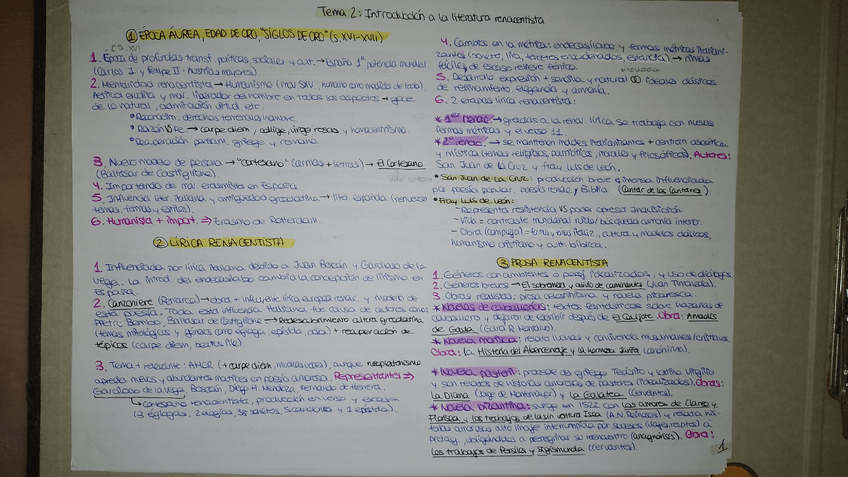 Tema 2: Introducción a la literatura renacentista
① ÉPOCA ÁUREA, EDAD DE ORO, "SIGLOS DE ORO" (s. XVI-XVII)
1. Época de profundas transf. políticas, sociales y cult. → España 1ª potencia mundial
(Carlos I y Felipe II - Austrias mayores).
2. Mentalidad renacentista → Humanismo (humano como medida de todo).
Actitud erudita y del hombre en todos los aspectos → goce
de lo natural, admiración virtud, etc.
• Racionalism. derechos terrenales hombre.
• Razón VS Fe → carpe diem, collige, virgo rosas y homocentrismo.
• Recuperación pensam. griego y romano.
3. Nuevo modelo de persona → "cortesano" (armas + letras) → El Cortesano
(Baltasar de Castiglione)
4. Importancia de erasmistas en España
5. Influencia liter. italiana y antigüedad grecolatina → liter. española (renueva
temas, formas y estilos).
6. Humanista + import. ⇒ Erasmo de Rotterdam.
② LÍRICA RENACENTISTA
1. Influenciada por lírica italiana debido a Juan Boscán y Garcilaso de la
Vega. La introd. del endecasílabo cambia la concepción de en
España.
2. Canzoniere (Petrarca) → obra + influyente lírica europea renac. y modelo de
esta poesía. Toda esta influencia italiana fue causa de autores como:
Pietro Bembo, Baltasar de Castiglione → Redescubrimiento cultura grecolatina
(temas mitológicos y géneros como égloga, epístola, oda) + recuperación de
tópicos (carpe diem, beatus ille).
3. Tema + relevante: AMOR (+ carpe diem, ), aunque neoplatonismo
aporta nuevos y abundantes matices en poesía amorosa. Representantes ⇒
Garcilaso de la Vega, Boscán, Diego H. Mendoza, Fernando de Herrera.
↳ cortesano renacentista, producción en verso y escasa
(3 églogas, 2 elegías, 38 sonetos, 5 canciones y 1 epístola).
4. Cambios en la métrica: endecasílabo y formas métricas italiani-
zantes (soneto, lira, tercetos encadenados, estancia) → rimas
fáciles, de escaso relieve fónico.
5. Desarrollo expresión + sencilla y natural ideales clásicos
de refinamiento, elegancia y armonía.
6. 2 etapas lírica renacentista:
* 1er renac. → gracias a la renov. lírica se trabaja con nuevas
formas métricas y el verso 11.
* 2º renac. → se mantienen moldes italianizantes + centran ascética
y mística (temas religiosos, patrióticos, morales y filosóficos). Autores:
San Juan de la Cruz y Fray Luis de León.
• San Juan de la Cruz: producción breve e intensa influenciada
por poesía popular, poesía renac. y Biblia (Cantar de los Cantares)
• Fray Luis de León:
- Representa resistencia VS poder opresor inquisición.
- Vida = contraste mundanal ruido / búsqueda armonía interior.
- Obra (compleja) = cultura y modelos clásicos,
humanismo cristiano y cult. bíblica.
③ PROSA RENACENTISTA
1. Géneros con ambientes o pers. idealizados, y uso de diálogos.
2. Géneros breves → El sobremesa y alivio de caminantes (Juan Timoneda).
3. Obras realistas: prosa celestinesca y novela picaresca.
* Novelas de caballerías: textos fantásticos sobre hazañas de
caballero y dejaron de escribir después de El Quijote. Obra: Amadís
de Gaula (Garci R. Montalvo).
* Novela morisca: relato luchas y convivencia musulmanes/cristianos.
Obra: La Historia del Abencerraje y la hermosa Jarifa (anónima).
* Novela pastoril: procede del griego Teócrito y latino Virgilio
y son relatos de historias amorosas de pastores (idealizados). Obras:
La Diana (Jorge de Montemayor) y La Galatea (Cervantes).
* Novela bizantina: surge en 1522 con Los amores de Clareo y
Florisea y los trabajos de la sin ventura Isea (A.N. Reinoso) y relata his-
torias amorosas alto linaje interrumpida por sucesos (viajes, raptos) a
protag. obligándolos a peregrinar su reencuentro (anagnórisis). Obra:
Los trabajos de Persiles y Sigismunda (Cervantes).
1